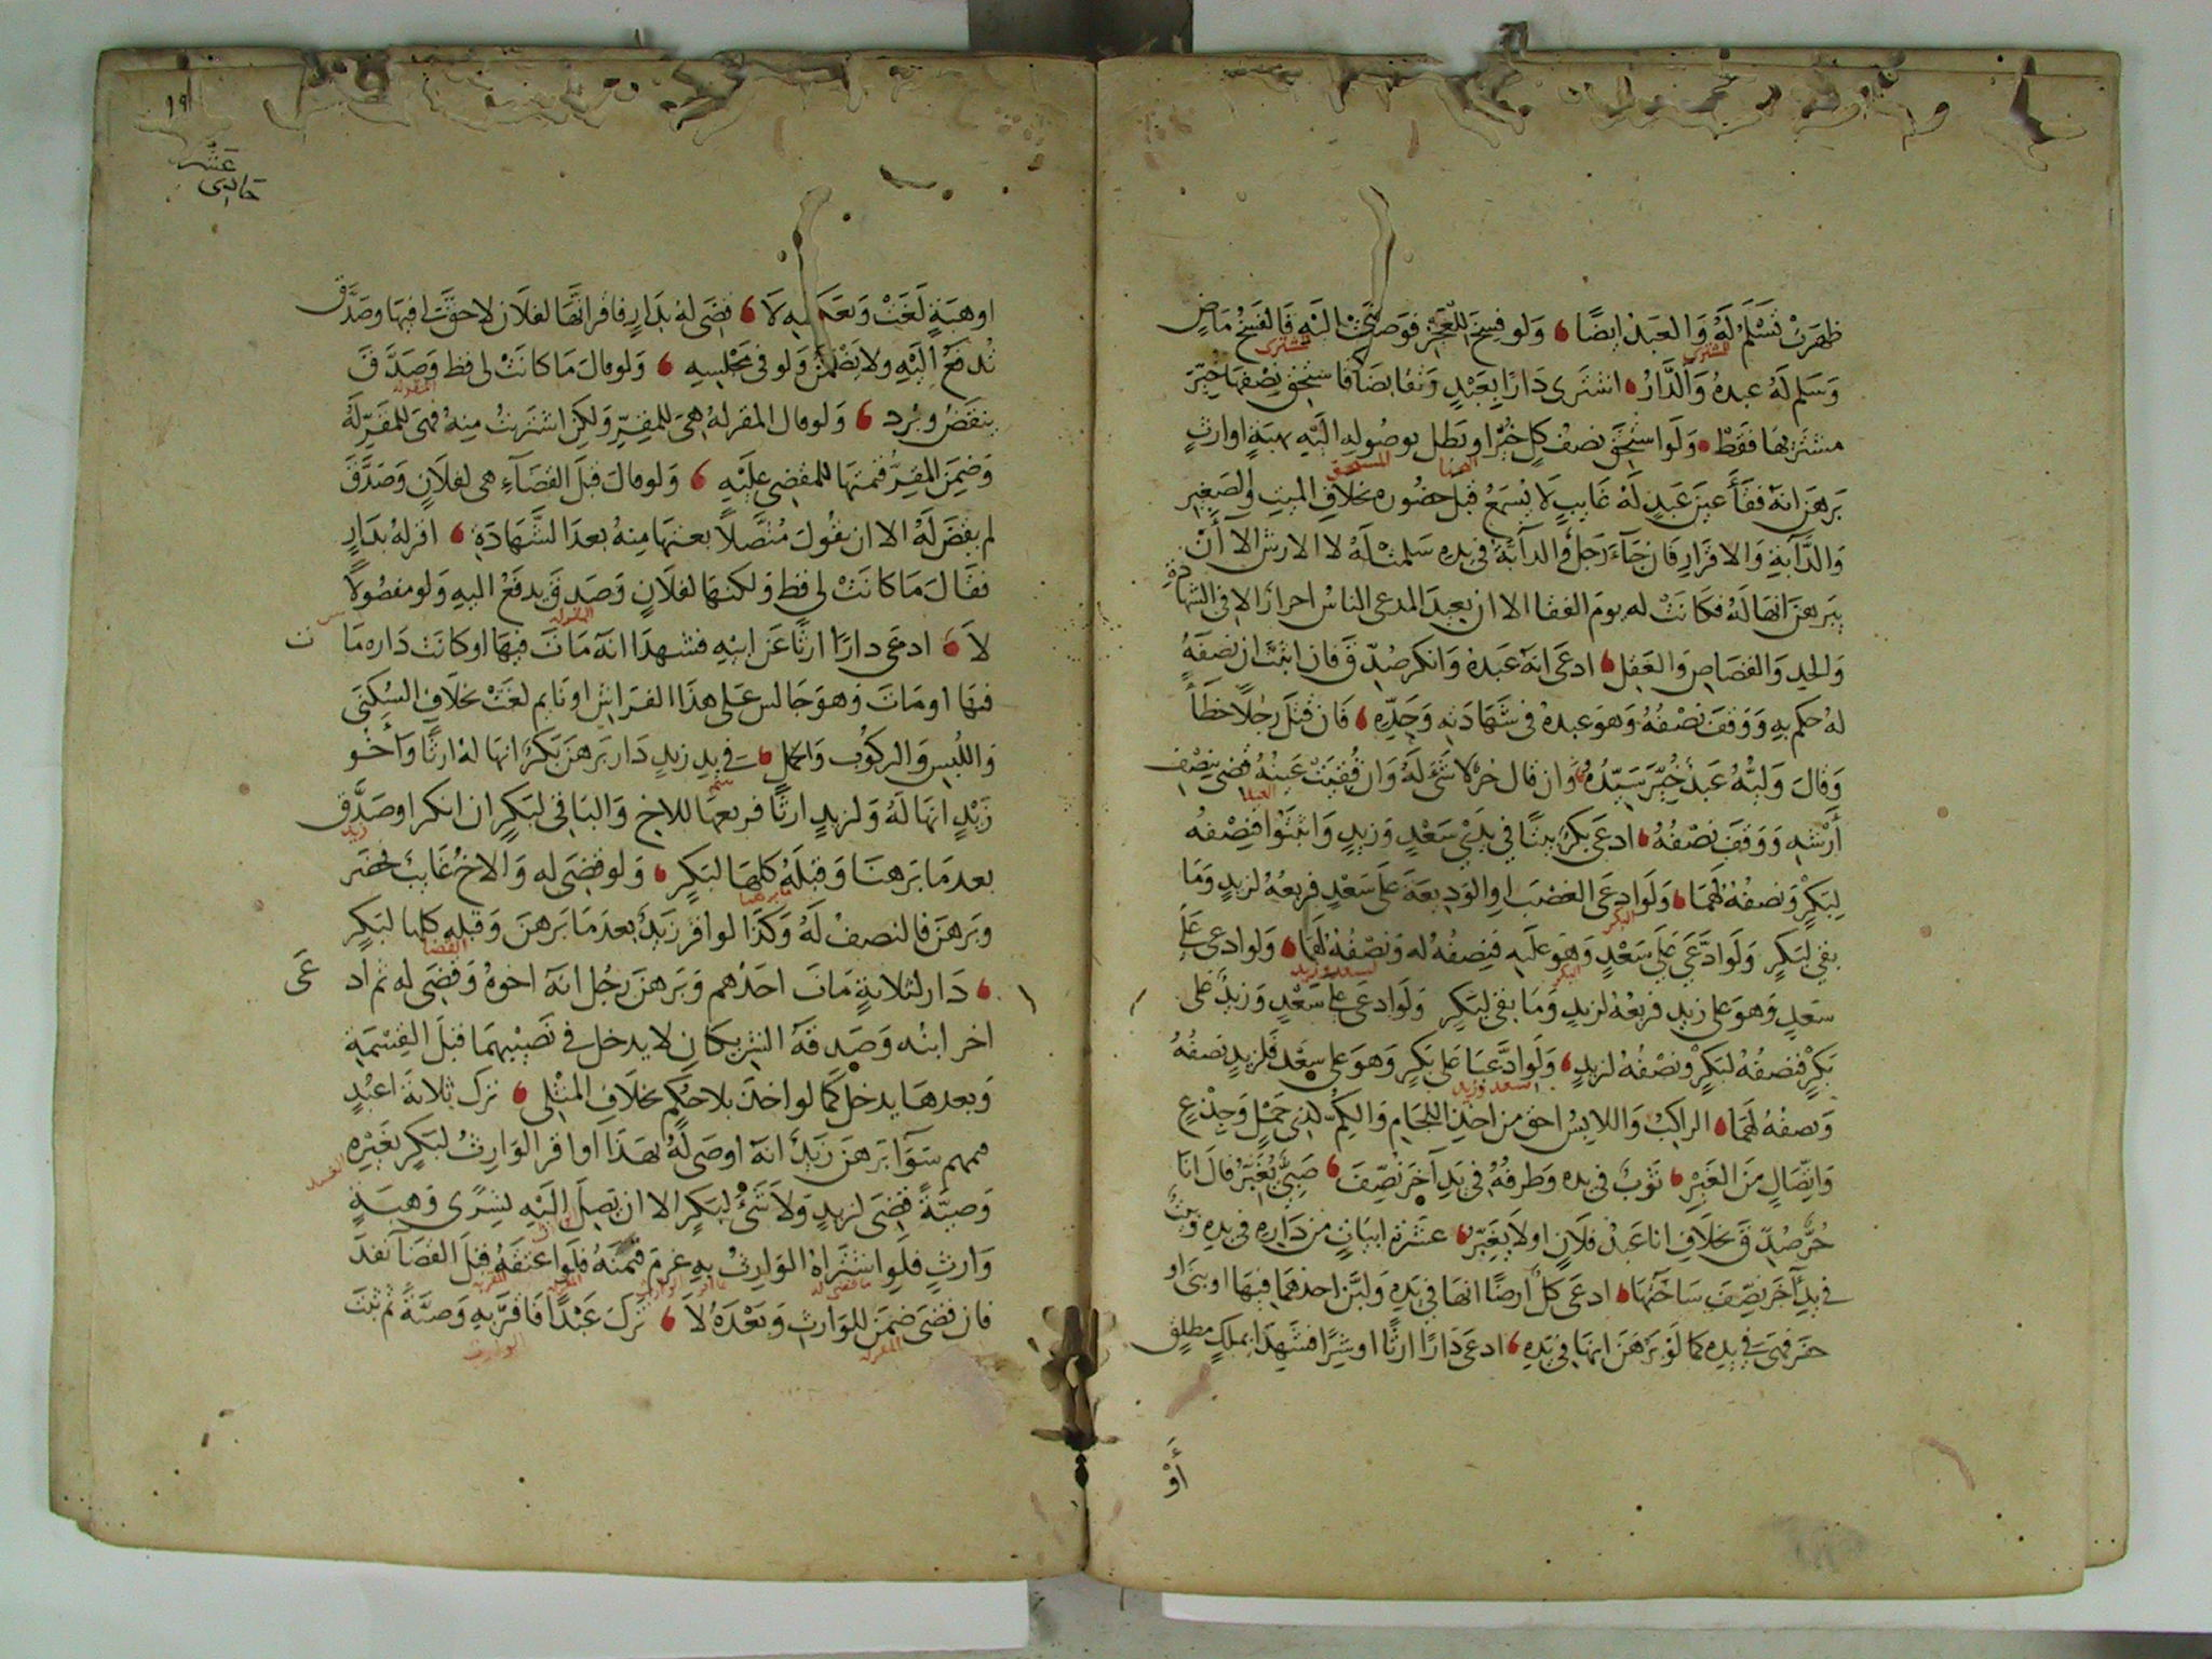 ظهرت تسلم له والعبد ايضا ولو فسخ للعجز فوصلت اليه فالفسخ ماض
وسلم له عبده والدار اشترى دارا بعبد وتقابضا فاستحق نصفها خير
مشتريها فقط ولو استحق نصف كل خيرا وبطل بوصوله اليه بهبة او ارث
برهن انه فقأ عين عبد له غايب لا يسمع قبل حضوره بخلاف الميت والصغير
والدابة والاقرار فان جاء رجل والدابة في يده سلمت له لا الارش الا أن
يبرهن انها له فكانت له يوم الفقا الا ان يعيد المدعى الناس احرار الا في الشهادة
والحد والقصاص والعقل ادعى انه عبده وانكر صدق فان اثبت ان نصفه
له حكم به ووقف نصفه وهو عبده في شهادته وحده فان قتل رجلا خطأ
وقال وليه عبد خير سيده وان قال حر لا شئ له وان فقيت عينه قضى بنصف
أرشه ووقف نصفه ادعى بكر بيتا في يدي سعد وزيد واثبتوا فنصفه
لبكر ونصفه لهما ولو ادعى الغصب او الوديعة على سعد فربعه لزيد وما
بقي لبكر ولو ادعى على سعد وهو عليه فنصفه له ونصفه لهما ولو ادعى على
سعد وهو على زيد فربعه لزيد وما بقى لبكر ولو ادعى على سعد وزيد على
بكر فنصفه لبكر ونصفه لزيد ولو ادعيا على بكر وهو على سعد فلزيد نصفه
ونصفه لهما الراكب واللابس احق من اخذ اللجام والكم لذي حمل وجذع
واتصال من الغير ثوب في يده وطرفه في يد آخر نصف صبي يعبر قال انا
حر صدق بخلاف انا عبد فلان او لا يعبر عشرة ابيات من دار في يده وبيت
في يد آخر نصف ساحتها ادعى كل ارضا انها في يده ولبن احدهما فيها او بنى او
حفر فهى في يده كما لو برهن انها في يده ادعى دارا ارثا او شرا فشهدا بملك مطلق
أو
١٩١
حادى عشر
او هبة لغت وبعكسه لا قضى له بدار فاقر انها لفلان لا حق لى فيها وصدق
تدفع اليه ولا يضمن ولو في مجلسه ولو قال ما كانت لى قط وصدق
ينقض ويرد ولو قال المقر له هى للمقر ولكن اشتريت منه فهى للمقر له
وضمن المقر قيمتها للمقضى عليه ولو قال قبل القضاء هى لفلان وصدق
لم يقض له الا ان يقول متصلا بعتها منه بعد الشهادة اقر له بدار
فقال ما كانت لي قط ولكنها لفلان وصدق يدفع اليه ولو مفصولا
لا ادعى دارا ارثا عن ابيه فشهدا انه مات فيها او كانت داره مات
فيها او مات وهو جالس على هذا الفراش او نايم لغت بخلاف السكنى
واللبس والركوب والحمل في يد زيد دار برهن بكر انها له ارثا وأخو
زيد انها له ولزيد ارثا فربعها للاخ والباقي لبكر ان انكر او صدق
بعد ما برهنا وقبله كلها لبكر ولو قضى له والاخ غايب فحضر
وبرهن فالنصف له وكذا لو اقر زيد بعد ما برهن وقبله كلها لبكر
دار لثلاثة مات احدهم وبرهن رجل انه اخوه وقضى له ثم ادعى
اخر ابنه وصدقه الشريكان لا يدخل في نصيبهما قبل القسمة
وبعدها يدخل كما لو اخذ بلا حكم بخلاف المثلى ترك ثلاثة اعبد
قيمهم سوآ برهن زيد انه اوصى له بهذا او اقر الوارث لبكر بغيره
وصية قضى لزيد ولا شئ لبكر الا ان يصل اليه بشرى وهبة
وارث فلو اشتراه الوارث به غرم قيمته فلو اعتقه قبل القضا نفذ
فان قضى ضمن للوارث وبعده لا ترك عبدا فاقر به وصية ثم ثبت